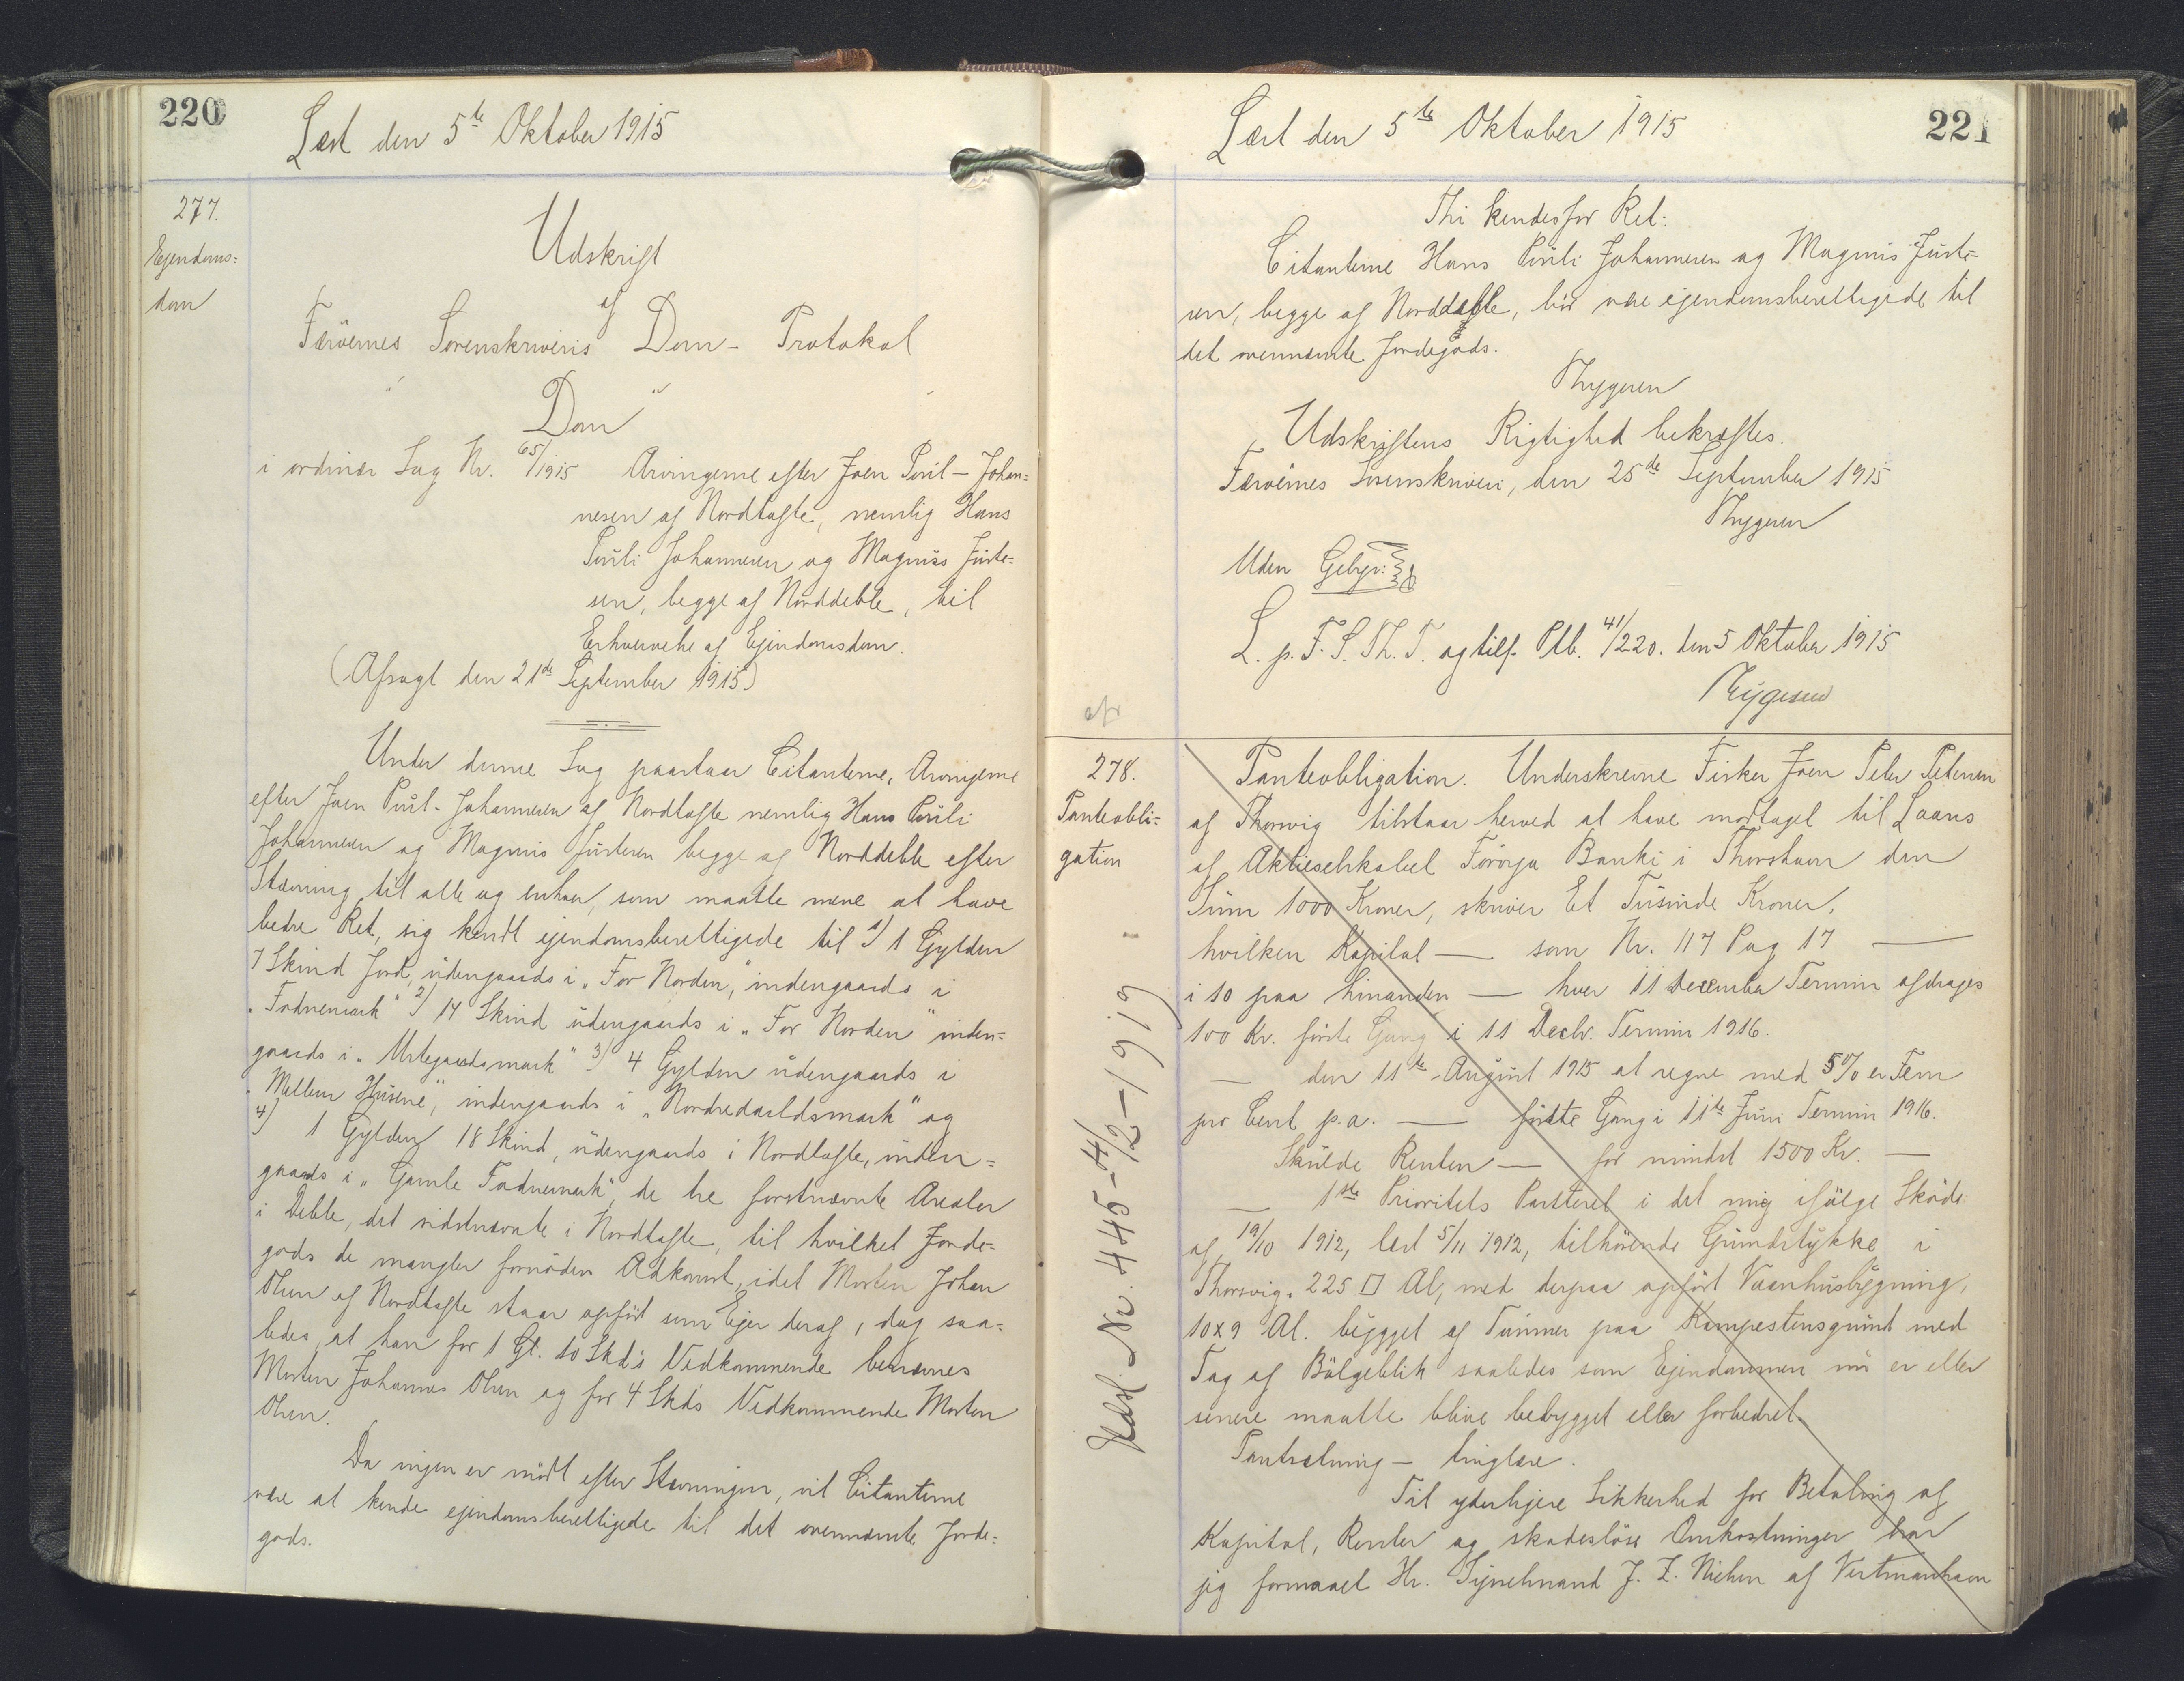 220
Læst den 5te Oktober 1915
277.
Ejendoms=
dom
Udskrift
af
Færøernes Sorenskriveris Dom- Protokol
"
Dom
"
i ordinær Sag Nr. 65/1915 Arvingerne efter Joen Poul-Johan=
nesen af Nordtofte, nemlig Hans
Pouli Johannesen og Magnus Juste=
sen, begge af Norddeble, til
Erhvervelse af Ejendomsdom.
(Afsagt den 21de September 1915)
Under denne Sag paastaar Citanterne, Arvingerne
efter Joen Poul-Johannesen af Nordtofte nemlig Hans Pouli
Johannesen og Magnus Justesen begge af Norddeble efter
Stævning til alle og enhver, som maatte mene at have
bedre Ret, sig kendt ejendomsberettigede til 1) 1 Gylden
7 Skind Jord, udengaards i "For Norden", indengaards i
"Fodnemark" 2) 14 Skind udengaards i "For Norden" inden=
gaards i "Urtegaardsmark" 3) 4 Gylden udengaards i
"Mellem Husene", indengaards i "Nordredarldsmark" og
4) 1 Gylden 18 Skind, udengaards i Nordtofte, inden=
gaards i "Gamle Fodnemark", de tre førstnævnte Arealer
i Deble, det sidstnævnte i Nordtofte, til hvilket Jorde=
gods de mangler fornøden Adkomst, idet Morten Johan
Olsen af Nordtofte staar opført som Ejer deraf, dog saa=
ledes, at han for 1 Gl. 10 Skds Vedkommende benævnes
Morten Johannes Olsen og for 4 Skds Vedkommende Morten
Olsen.
Da ingen er mødt efter Stævningen, vil Citanterne
være at kende ejendomsberettigede til det ovennævnte Jorde=
gods.
Læst den 5te Oktober 1915
221
Thi kendes for Ret:
Citanterne Hans Pouli Johannesen og Magnus Juste=
sen, begge af Norddeble, bør være ejendomsberettigede til
det ovennævnte Jordegods.
Thygesen
Udskriftens Rigtighed bekræftes.
Færøernes Sorenskriveri, den 25de September 1915
Thygesen
Uden Gebyr.
L. p. F. S. Th. T. og tilf. Ptb. 41/220. den 5 Oktober 1915
Thygesen
278.
Panteobli=
gation
Udsl. Nr. 445-4/2-1919
Panteobligation. Underskrevne Fisker Joen Peter Petersen
af Thorsvig tilstaar herved at have modtaget til Laans
af Aktieselskabet Føroya Banki i Thorshavn den
Sum 1000 Kroner, skriver Et Tusinde Kroner,
hvilken Kapital — som Nr. 117 Pag 17 —
i 10 paa hinanden — hver 11 December Termin afdrages
100 Kr. første Gang i 11 Decbr. Termin 1916.
— den 11te August 1915 at regne med 5% er Fem
pro Cent p.a. — første Gang i 11te Juni Termin 1916.
Skulde Renten — for mindst 1500 Kr. —
— 1ste Prioritets Panteret i det mig ifølge Skøde
af 19/10 1912, læst 5/11 1912, tilhørende Grundstykke i
Thorsvig. 225 □ Al, med derpaa opført Vaanhusbygning,
10x9 Al. bygget af Tømmer paa Kampestensgrund med
Tag af Bølgeblik saaledes som Ejendommen nu er eller
senere maatte blive bebygget eller forbedret.
Pantsætning — tinglæse.
Til yderligere Sikkerhed for Betaling af
Kapital, Renter og skadesløse Omkostninger har
jeg formaaet Hr. Sysselmand J. Z. Nielsen af Vestmanhavn